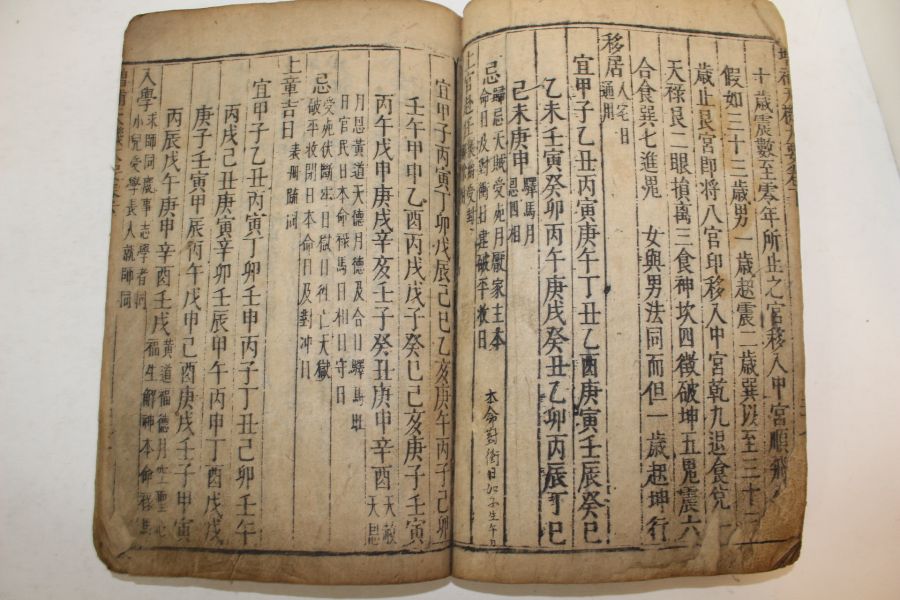 十歲震數至零年所止之宮移入甲宮順飛
假如三十三歲男一歲起震二歲巽以至三十三
歲止艮宮即將八宮印移入中宮乾九退食兌一
天祿艮二眼損离三食神坎四徵破坤五鬼震六
合食巽七進鬼 女與男法同而但一歲起坤行
移居 入宅日通用
宜甲子乙丑丙寅庚午丁丑乙酉庚寅壬辰癸巳
乙未壬寅癸卯丙午庚戌癸丑乙卯丙辰丁巳
己未庚申 驛馬月恩四相
忌 歸忌天賊受死月厭家主本
命日及對衝日建破平收日
本命對衝日如子生午日
上官赴任
宜甲子丙寅丁卯戊辰己巳乙亥庚午丙子己卯
壬午甲申乙酉丙戌戊子癸巳己亥庚子壬寅
丙午戊申庚戌辛亥壬子癸丑庚申辛酉 天赦天恩
月恩黃道天德月德及合日驛馬旺
日官民日本命祿馬日相日守日
忌 受死伏斷往亡日獄日徒亡天獄
破平收閉日本命日及對冲日
上章吉日 表冊疏詞
宜甲子乙丑丙寅丁卯壬申丙子丁丑己卯壬午
丙戌己丑庚寅辛卯壬辰甲午丙申丁酉戊戌
庚子壬寅甲辰丙午戊申己酉庚戌壬子甲寅
丙辰戊午庚申辛酉壬戌 黃道福德月空聖心福生解神本命祿馬
入學 求師同慶事志學者
小兒受學長人就師同